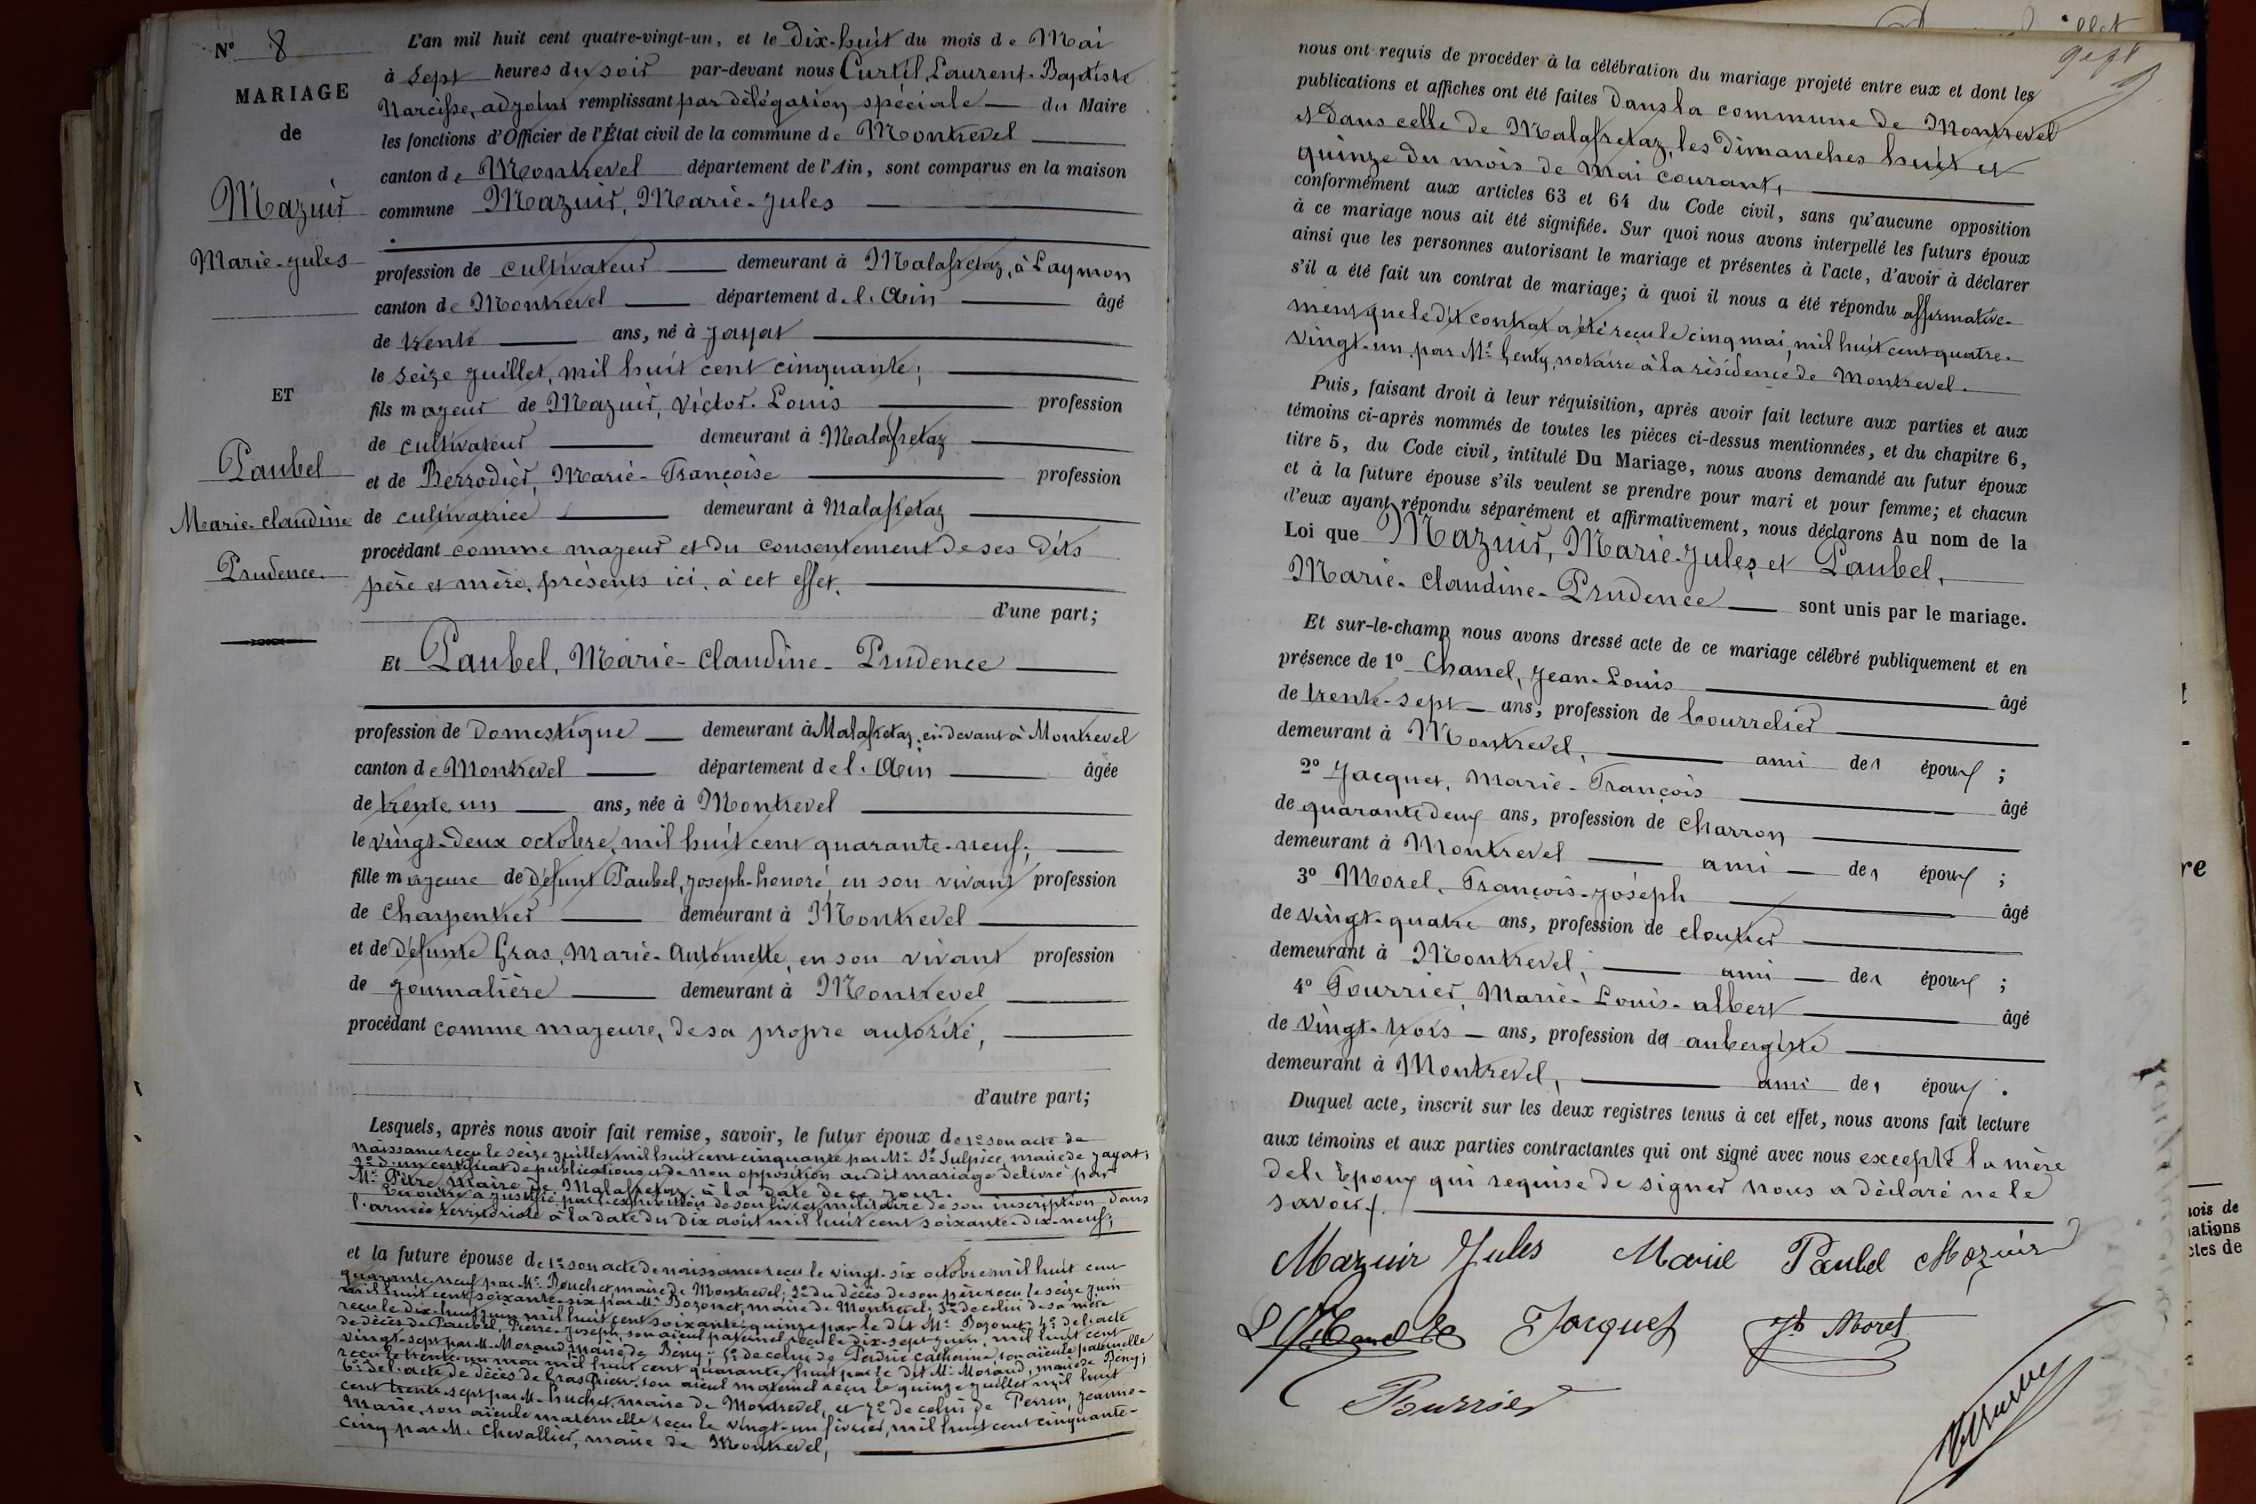 N° 8
MARIAGE
de
Mazuir
Marie-Jules
ET
Paubel
Marie-Claudine
Prudence.
L'an mil huit cent quatre-vingt-un, et le Dix-huit du mois de Mai
à Sept heures du soir par-devant nous Curtil, Laurent-Baptiste
Narcisse, adjoint remplissant par délégation spéciale du Maire
les fonctions d'Officier de l'État civil de la commune de Montrevel
canton de Montrevel département de l'Ain, sont comparus en la maison
commune Mazuir, Marie-Jules
profession de cultivateur demeurant à Malafretaz, à Laymon
canton de Montrevel département de l'Ain âgé
de trente ans, né à Jayat
le seize juillet, mil huit cent cinquante;
fils majeur de Mazuir, Victor-Louis profession
de cultivateur demeurant à Malafretaz
et de Berrodier, Marie-Françoise profession
de cultivatrice demeurant à Malafretaz
procédant comme majeur et du consentement de ses dits
père et mère, présents ici, à cet effet.
d'une part;
Et Paubel, Marie-Claudine-Prudence
profession de Domestique demeurant à Malafretaz, ci-devant à Montrevel
canton de Montrevel département de l'Ain âgée
de trente un ans, née à Montrevel
le vingt-deux octobre, mil huit cent quarante-neuf;
fille majeure de défunt Paubel, Joseph-honoré, en son vivant profession
de Charpentier demeurant à Montrevel
et de défunte Gras, Marie-Antoinette, en son vivant profession
de journalière demeurant à Montrevel
procédant comme majeure, de sa propre autorité,
d'autre part;
Lesquels, après nous avoir fait remise, savoir, le futur époux de 1° son acte de
naissance reçu le seize juillet mil huit cent cinquante par Mr St Sulpice, maire de Jayat;
2° d'un certificat de publications et de non opposition au dit mariage délivré par
Mr Pitre, Maire de Malafretaz, à la date de ce jour.
En outre a justifié par l'exhibition de son livret militaire de son inscription dans
l'armée territoriale à la date du Dix août mil huit cent soixante-dix-neuf;
et la future épouse de 1° son acte de naissance reçu le vingt-six octobre mil huit cent
quarante-neuf par Mr Bouchet, maire de Montrevel; 2° du décès de son père reçu le seize juin
mil huit cent soixante-six par Mr Bozonet, maire de Montrevel; 3° de celui de sa mère
reçu le dix-huit juin mil huit cent soixante-quinze par le dit Mr Bozonet; 4° de l'acte
de décès de Paubel, Pierre-Joseph, son aïeul paternel reçu le dix-sept juin mil huit cent
vingt-sept par M. Morand, maire de Beny; 5° de celui de Perdrix Catherine, son aïeule paternelle
reçu le trente-un mai mil huit cent quarante-huit par le dit Mr Morand, maire de Beny;
6° de l'acte de décès de Gras Pierre, son aïeul maternel reçu le quinze juillet mil huit
cent trente-sept par M. Luchet, maire de Montrevel, et 7° de celui de Perrin, Jeanne-
Marie, son aïeule maternelle reçu le vingt-un février, mil huit cent cinquante-
cinq par M. Chevallier, maire de Montrevel;
nous ont requis de procéder à la célébration du mariage projeté entre eux et dont les
publications et affiches ont été faites Dans la commune de Montrevel
et dans celle de Malafretaz, les Dimanches huit et
quinze du mois de mai courant,
conformément aux articles 63 et 64 du Code civil, sans qu'aucune opposition
à ce mariage nous ait été signifiée. Sur quoi nous avons interpellé les futurs époux
ainsi que les personnes autorisant le mariage et présentes à l'acte, d'avoir à déclarer
s'il a été fait un contrat de mariage; à quoi il nous a été répondu affirmative-
ment que le dit contrat a été reçu le cinq mai, mil huit cent quatre-
vingt-un, par Mr Genty, notaire à la résidence de Montrevel.
Puis, faisant droit à leur réquisition, après avoir fait lecture aux parties et aux
témoins ci-après nommés de toutes les pièces ci-dessus mentionnées, et du chapitre 6,
titre 5, du Code civil, intitulé Du Mariage, nous avons demandé au futur époux
et à la future épouse s'ils veulent se prendre pour mari et pour femme; et chacun
d'eux ayant répondu séparément et affirmativement, nous déclarons Au nom de la
Loi que Mazuir, Marie-Jules, et Paubel,
Marie-Claudine-Prudence sont unis par le mariage.
Et sur-le-champ nous avons dressé acte de ce mariage célébré publiquement et en
présence de 1° Chanel, Jean-Louis âgé
de trente-sept ans, profession de bourrelier
demeurant à Montrevel, ami des époux;
2° Jacquet, Marie-François âgé
de quarante deux ans, profession de charron
demeurant à Montrevel ami des époux;
3° Morel, François-Joseph âgé
de vingt-quatre ans, profession de cloutier
demeurant à Montrevel, ami des époux;
4° Fourrier, Marie-Louis-albert âgé
de vingt-trois ans, profession de aubergiste
demeurant à Montrevel, ami des époux.
Duquel acte, inscrit sur les deux registres tenus à cet effet, nous avons fait lecture
aux témoins et aux parties contractantes qui ont signé avec nous excepté la mère
de l'Epoux qui requise de signer nous a déclaré ne le
savoir.
Mazuir Jules Marie Paubel Mazuir
Jacquet Jh Morel
Fourrier